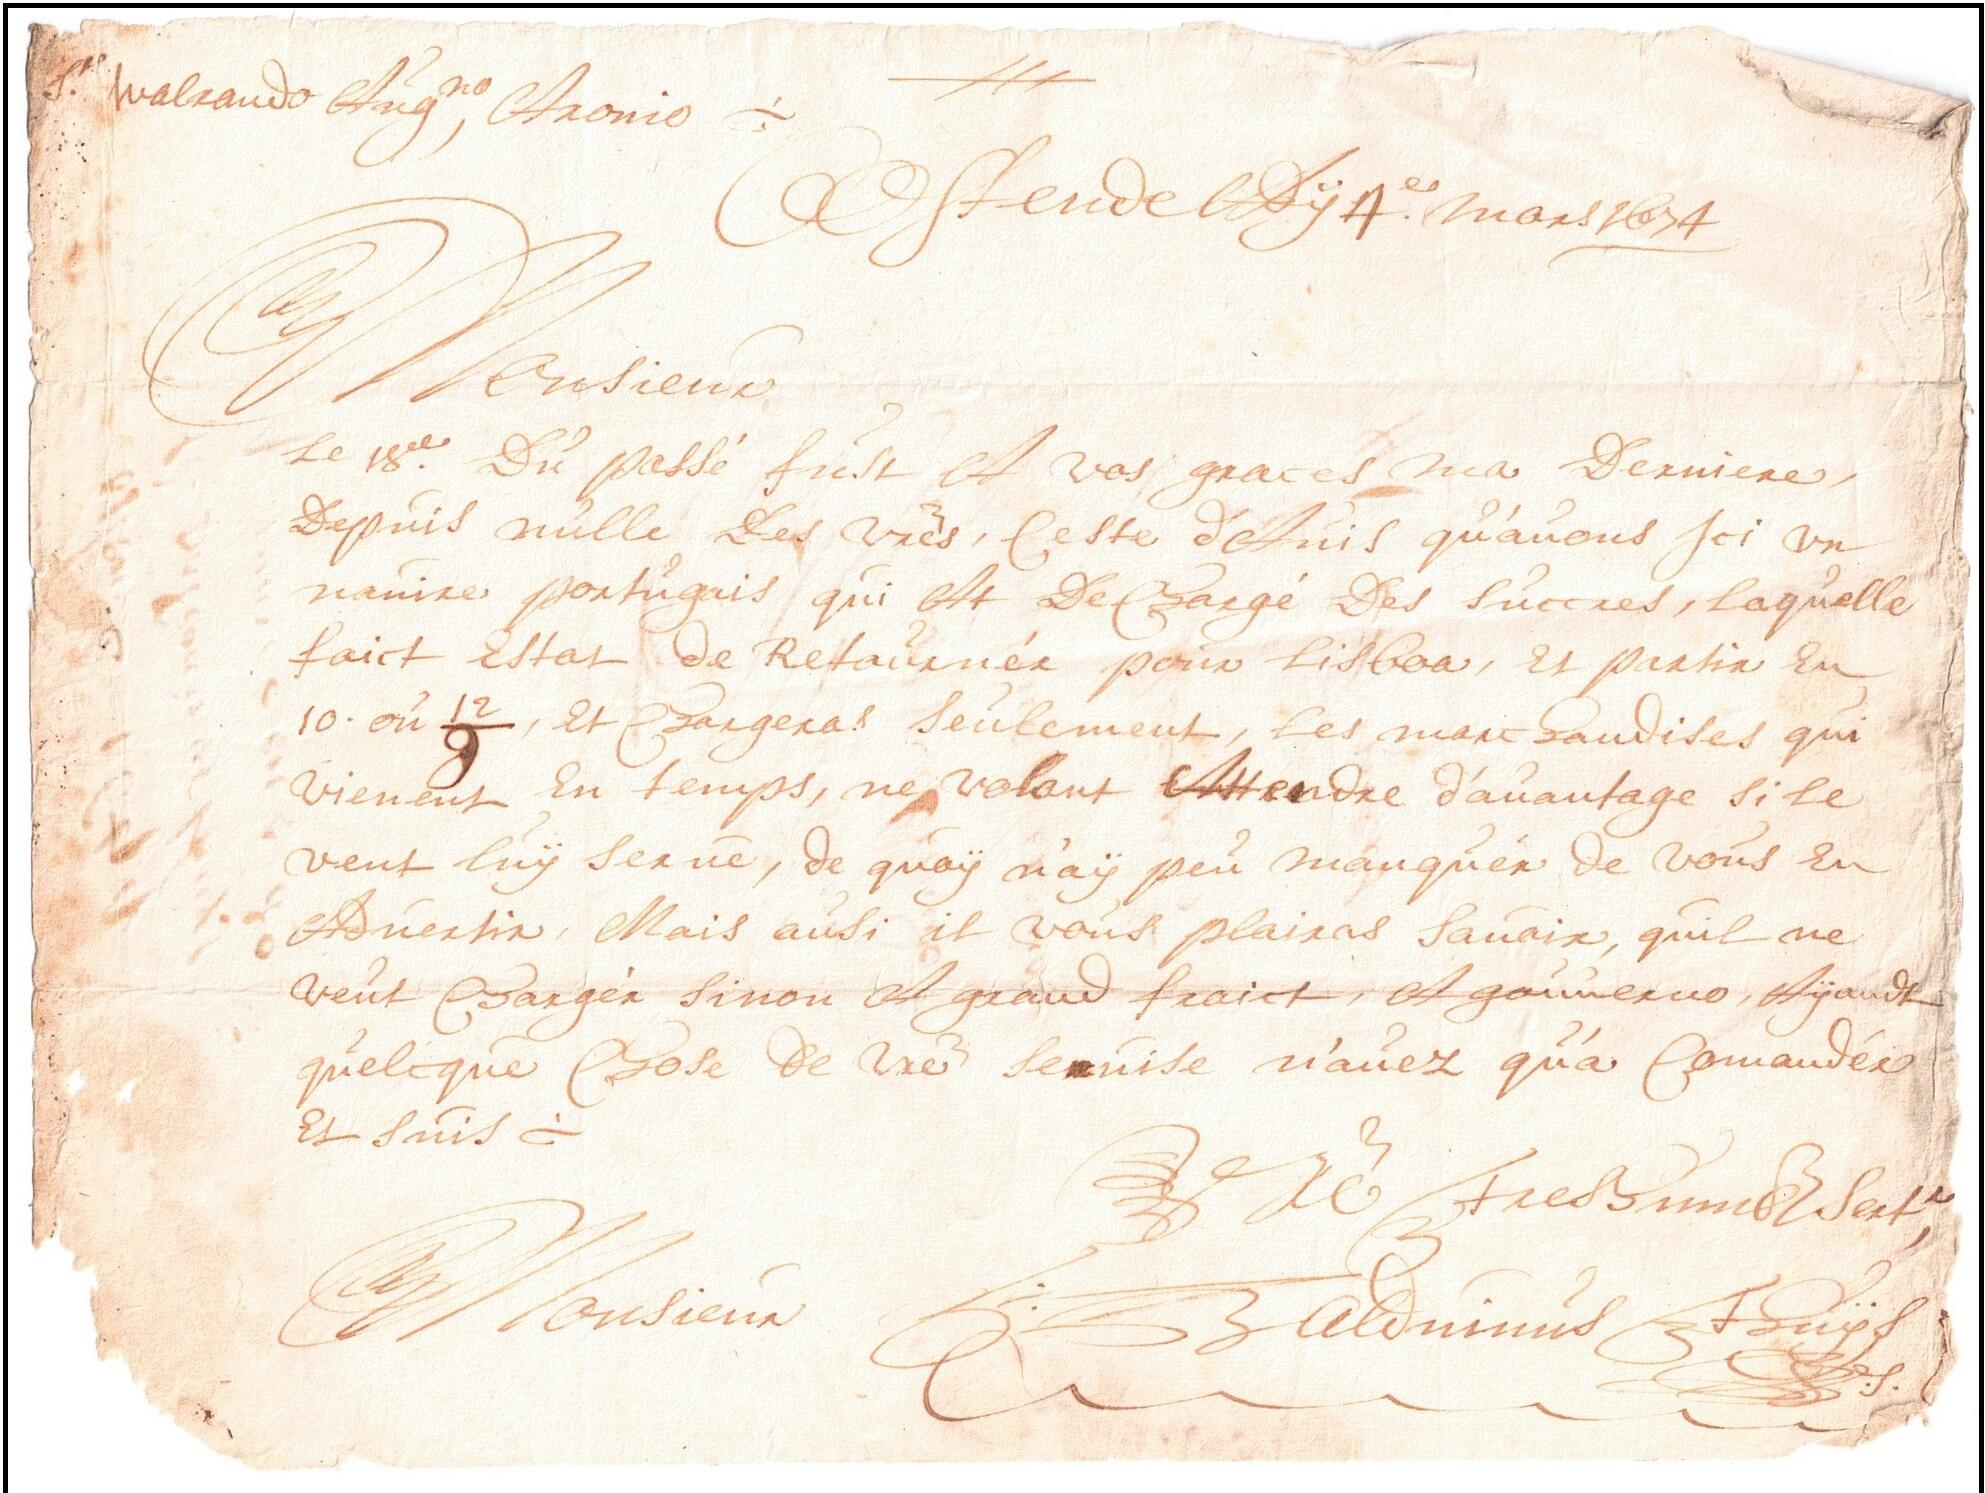 Sr. Walrando Augno, Aronio
Ostende Adÿ 4e. mars 1674
Monsieur
Le 18e. Du passé fust A vos graces ma Derniere,
Depuis nulle Des vres, Ceste d'Auis qu'auons Ici vn
nauire portugais qui At DeChargé Des Succres, laquelle
faict Estat de Retournér pour Lisboa, Et partir En
10. ou 12/9, Et Chargeras Seulement, Les marchandises qui
vienent En temps, ne volant Attendre d'auantage Si Le
vent luÿ Serue, de quoÿ n'aÿ peu manquér de vous En
Aduertir, Mais ausi il vous plairas Sauoir, quil ne
veut Chargér Sinon A grand fraict, A gouuerno, Aÿandt
quelcque Chose de vre Seruise n'auez qu'a Comandér
Et Suis
Vre Treshumb Sertr,
Monsieur
Balduinus Thuÿs